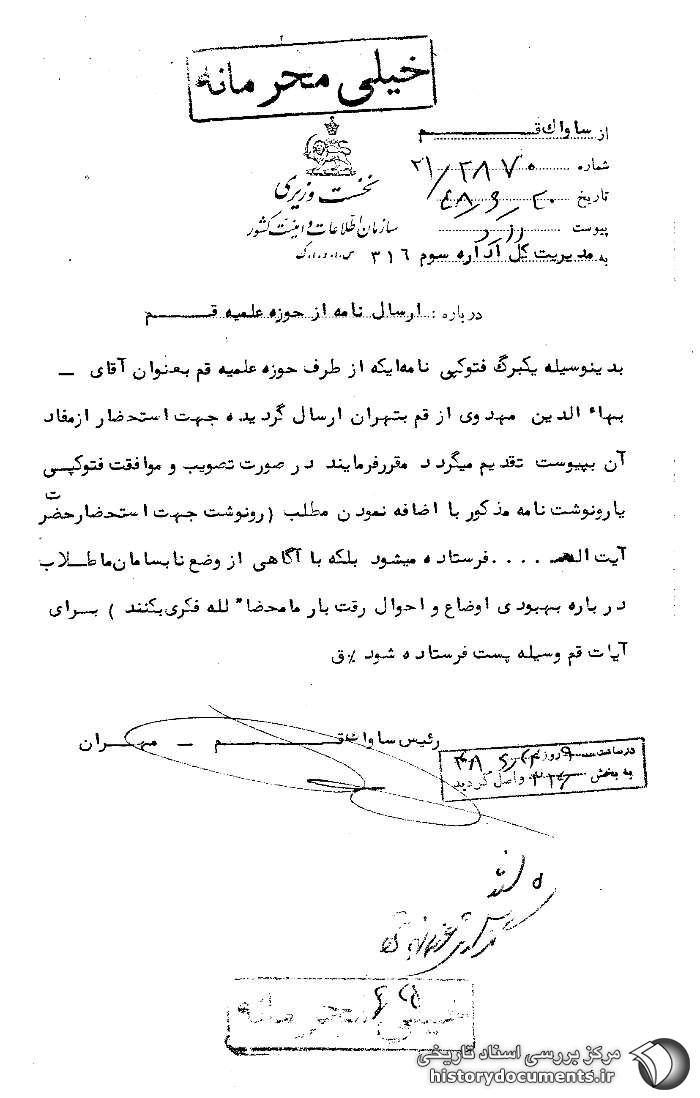 خیلی محرمانه
از ساواک قم
شماره ۲۱/۲۸۷۰
تاریخ
پیوست دارد
به مدیریت کل اداره سوم ۳۱۶
نخست وزیری
سازمان اطلاعات و امنیت کشور
درباره : ارسال نامه از حوزه علمیه قم
بدینوسیله یکبرگ فتوکپی نامه‌ایکه از طرف حوزه علمیه قم بعنوان آقای –
بهاء الدین مهدوی از قم بتهران ارسال گردیده جهت استحضار از مفاد
آن بپیوست تقدیم میگردد مقررفرمایند در صورت تصویب و موافقت فتوکپی
یا رونوشت نامه مذکور با اضافه نمودن مطلب (رونوشت جهت استحضار حضرت
آیت اله .... فرستاده میشود بلکه با آگاهی از وضع نابسامان ما طلاب
درباره بهبودی اوضاع و احوال رقت بار ما محضا" لله فکری بکنند ) برای
آیات قم وسیله پست فرستاده شود ٪ق
رئیس ساواک قم – مهران
در ساعت ۹ روز
به بخش ۳۱۶ واصل گردید
خیلی محرمانه
مرکز بررسی اسناد تاریخی
historydocuments.ir